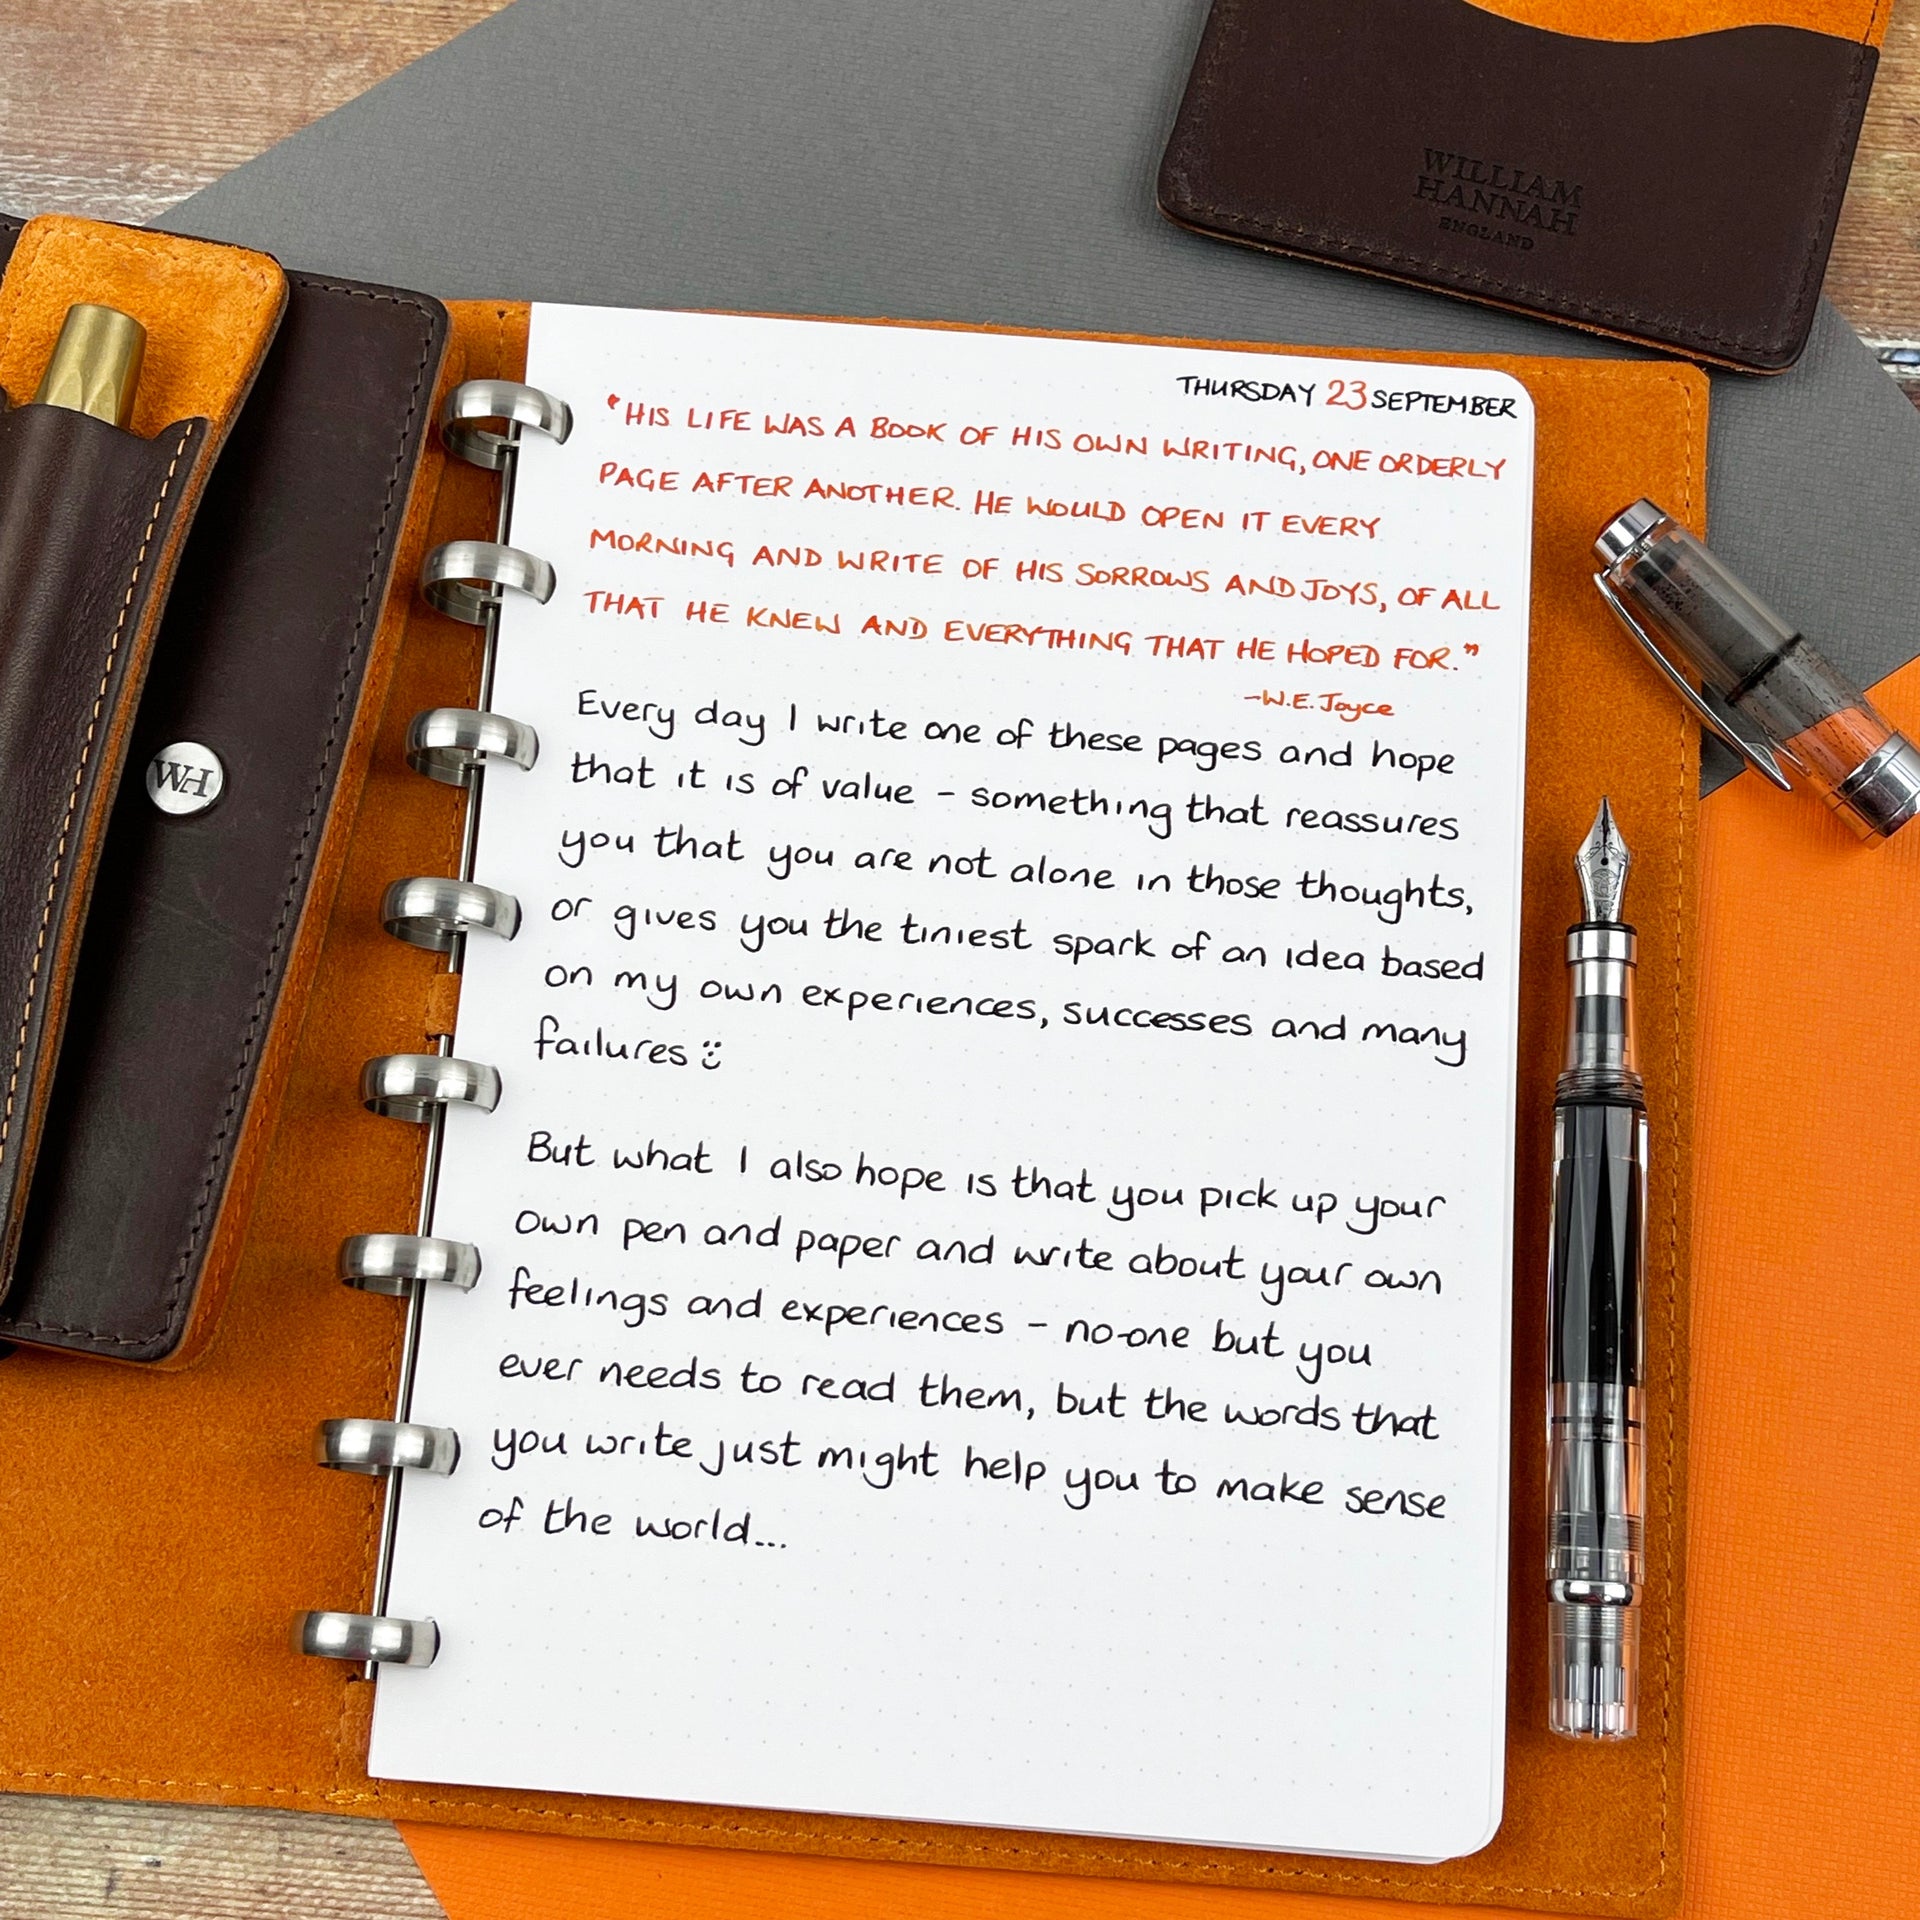 WILLIAM
HANNAH
ENGLAND
WH
THURSDAY 23 SEPTEMBER
"HIS LIFE WAS A BOOK OF HIS OWN WRITING, ONE ORDERLY
PAGE AFTER ANOTHER. HE WOULD OPEN IT EVERY
MORNING AND WRITE OF HIS SORROWS AND JOYS, OF ALL
THAT HE KNEW AND EVERYTHING THAT HE HOPED FOR."
-W.E. Joyce
Every day I write one of these pages and hope
that it is of value - something that reassures
you that you are not alone in those thoughts,
or gives you the tiniest spark of an idea based
on my own experiences, successes and many
failures :)
But what I also hope is that you pick up your
own pen and paper and write about your own
feelings and experiences - no-one but you
ever needs to read them, but the words that
you write just might help you to make sense
of the world...